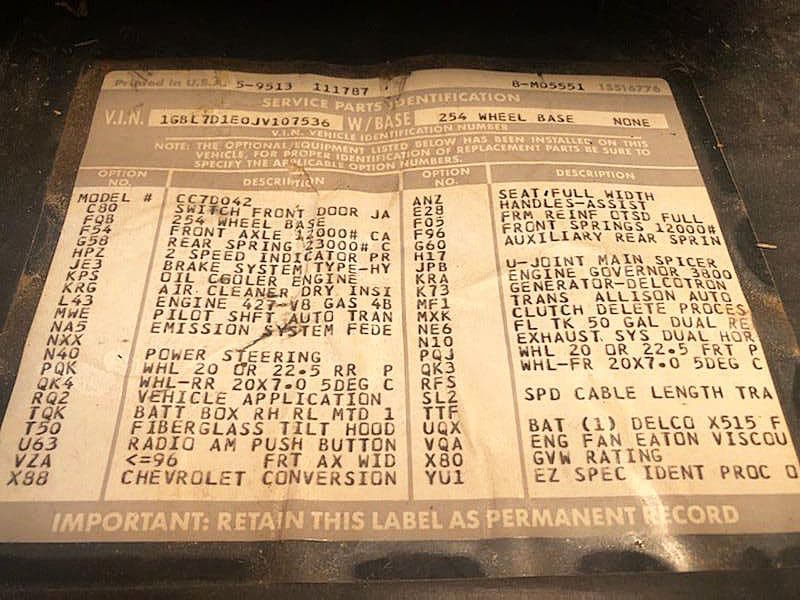 Printed in U.S.A. 5-9513 111787 8-M05551 15516776
SERVICE PARTS IDENTIFICATION
V.I.N. 1GBL7D1E0JV107536 W/BASE 254 WHEEL BASE NONE
V.I.N. VEHICLE IDENTIFICATION NUMBER
NOTE: THE OPTIONAL/EQUIPMENT LISTED BELOW HAS BEEN INSTALLED ON THIS
VEHICLE, FOR PROPER IDENTIFICATION OF REPLACEMENT PARTS BE SURE TO
SPECIFY THE APPLICABLE OPTION NUMBERS.
OPTION NO. DESCRIPTION OPTION NO. DESCRIPTION
MODEL # CC7D042 ANZ SEAT FULL WIDTH
C80 SWITCH FRONT DOOR JA E28 HANDLES-ASSIST
FQB 254 WHEEL BASE F05 FRM REINF OTSD FULL
F54 FRONT AXLE 12000# CA F96 FRONT SPRINGS 12000#
G58 REAR SPRING 23000# C G60 AUXILIARY REAR SPRIN
HPZ 2 SPEED INDICATOR PR H17
JE3 BRAKE SYSTEM TYPE-HY JPB U-JOINT MAIN SPICER
KPS OIL COOLER ENGINE KRA ENGINE GOVERNOR 3800
KRG AIR CLEANER DRY INSI K73 GENERATOR-DELCOTRON
L43 ENGINE 427-V8 GAS 4B MF1 TRANS ALLISON AUTO
MWE PILOT SHFT AUTO TRAN MXK CLUTCH DELETE PROCES
NA5 EMISSION SYSTEM FEDE NE6 FL TK 50 GAL DUAL RE
NXX N10 EXHAUST SYS DUAL HOR
N40 POWER STEERING PQJ WHL 20 OR 22.5 FRT P
PQK WHL 20 OR 22.5 RR P QK3 WHL-FR 20X7.0 5DEG C
QK4 WHL-RR 20X7.0 5DEG C RFS
RQ2 VEHICLE APPLICATION SL2 SPD CABLE LENGTH TRA
TQK BATT BOX RH RL MTD 1 TTF
T50 FIBERGLASS TILT HOOD UQX BAT (1) DELCO X515 F
U63 RADIO AM PUSH BUTTON VQA ENG FAN EATON VISCOU
VZA <=96 FRT AX WID X80 GVW RATING
X88 CHEVROLET CONVERSION YU1 EZ SPEC IDENT PROC O
IMPORTANT: RETAIN THIS LABEL AS PERMANENT RECORD